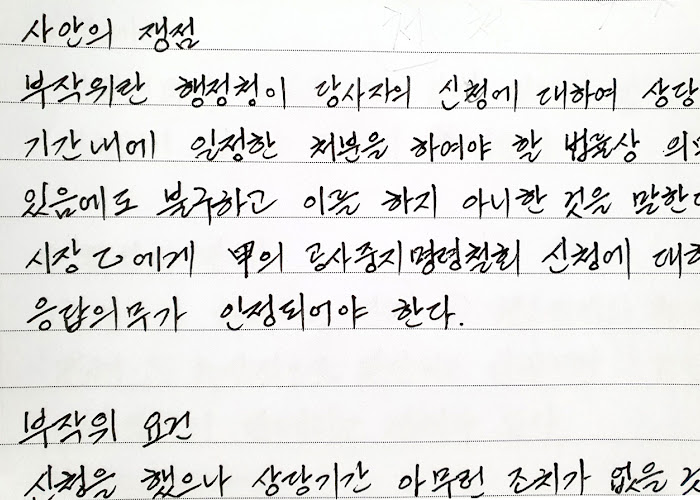 사안의 쟁점
부작위란 행정청이 당사자의 신청에 대하여 상당
기간내에 일정한 처분을 하여야 할 법률상 의
있음에도 불구하고 이를 하지 아니한 것을 말한
시장 乙에게 甲의 공사중지명령철회 신청에 대
응답의무가 인정되어야 한다.
부작위 요건
신청을 했으나 상당기간 아무런 조치가 없을